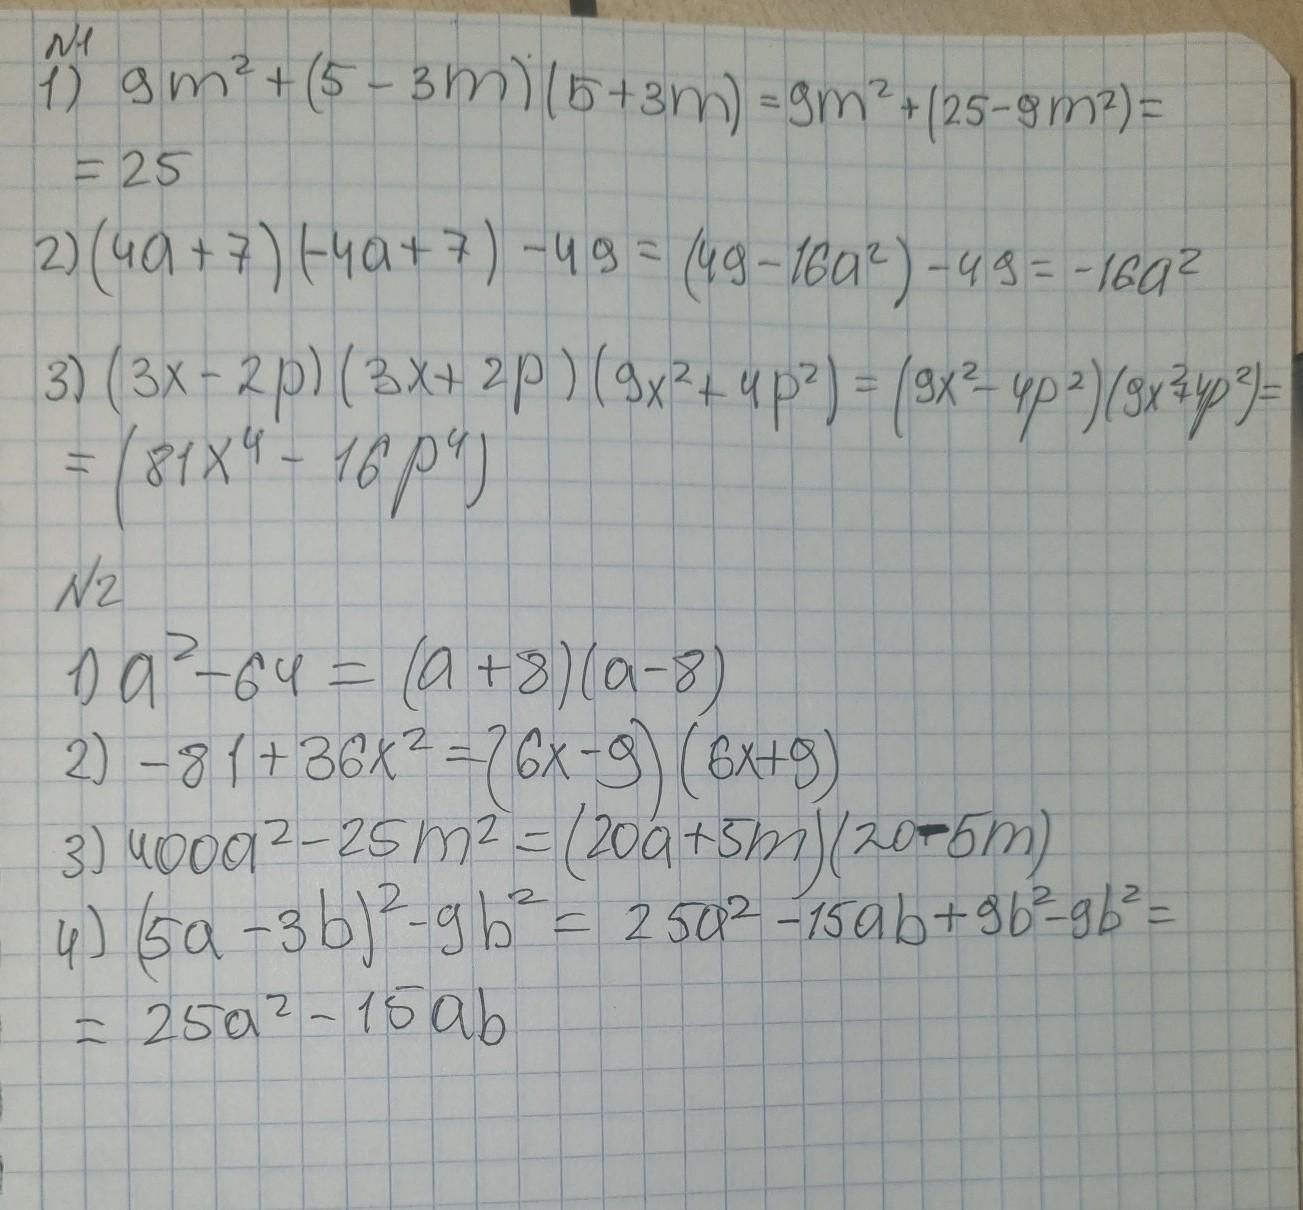 N1
1) 9m² + (5 - 3m) (5 + 3m) = 9m² + (25 - 9m²) =
= 25
2) (4a + 7) (-4a + 7) - 49 = (49 - 16a²) - 49 = -16a²
3) (3x - 2p) (3x + 2p) (9x² + 4p²) = (9x² - 4p²) (9x² + 4p²) =
= (81x⁴ - 16p⁴)
N2
1) a² - 64 = (a + 8) (a - 8)
2) -81 + 36x² = (6x - 9) (6x + 9)
3) 400a² - 25m² = (20a + 5m) (20 - 5m)
4) (5a - 3b)² - 9b² = 25a² - 15ab + 9b² - 9b² =
= 25a² - 15ab